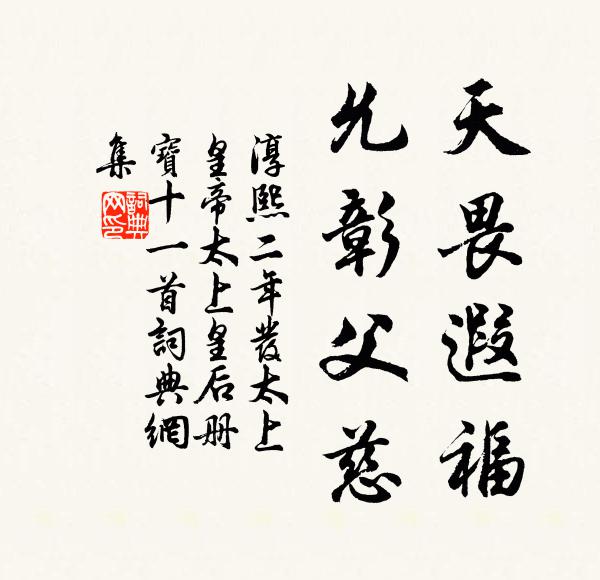 天畏遐福
允彰父慈
淳熙二年發太上
皇帝太上皇后册
寶十一首詞典網
集
詞典
网印